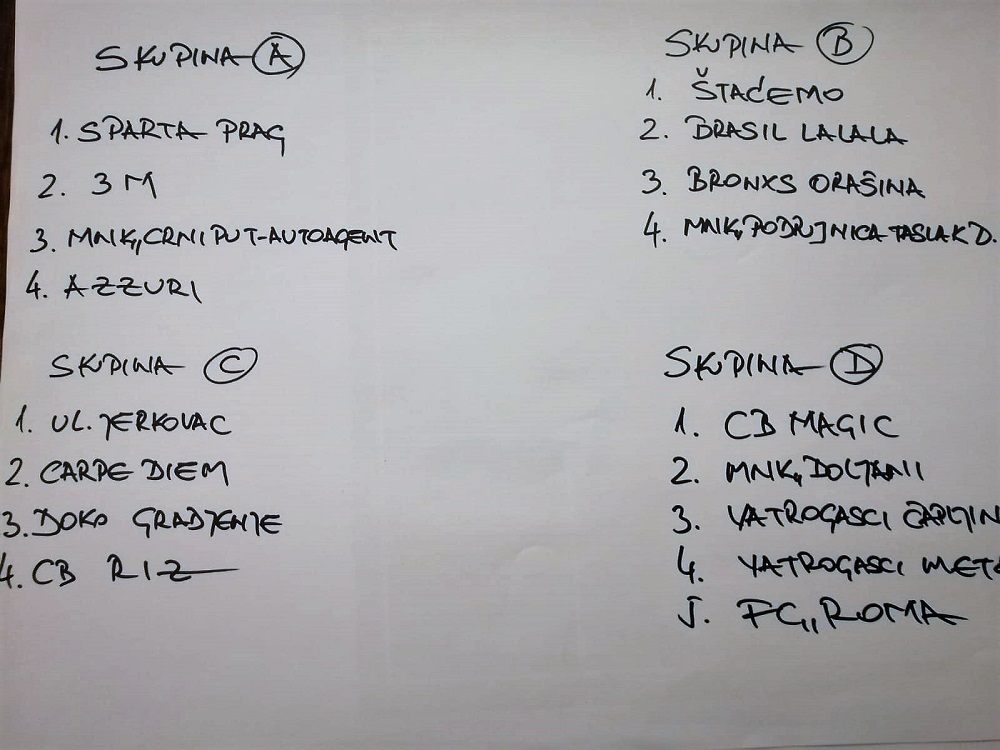 SKUPINA A
1. SPARTA PRAG
2. 3 M
3. MNK,,CRNI PUT-AUTOAGENT
4. AZZURI
SKUPINA B
1. ŠTAĆEMO
2. BRASIL LALALA
3. BRONXS ORAŠINA
4. MNK,,PODRUJNICA TASLAK D.
SKUPINA C
1. UL. JERKOVAC
2. CARPE DIEM
3. DOKO GRADJENJE
4. CB RIZ
SKUPINA D
1. CB MAGIC
2. MNK,,DOLJANI
3. VATROGASCI ČAPLJIN
4. VATROGASCI METK
5. FC,,ROMA